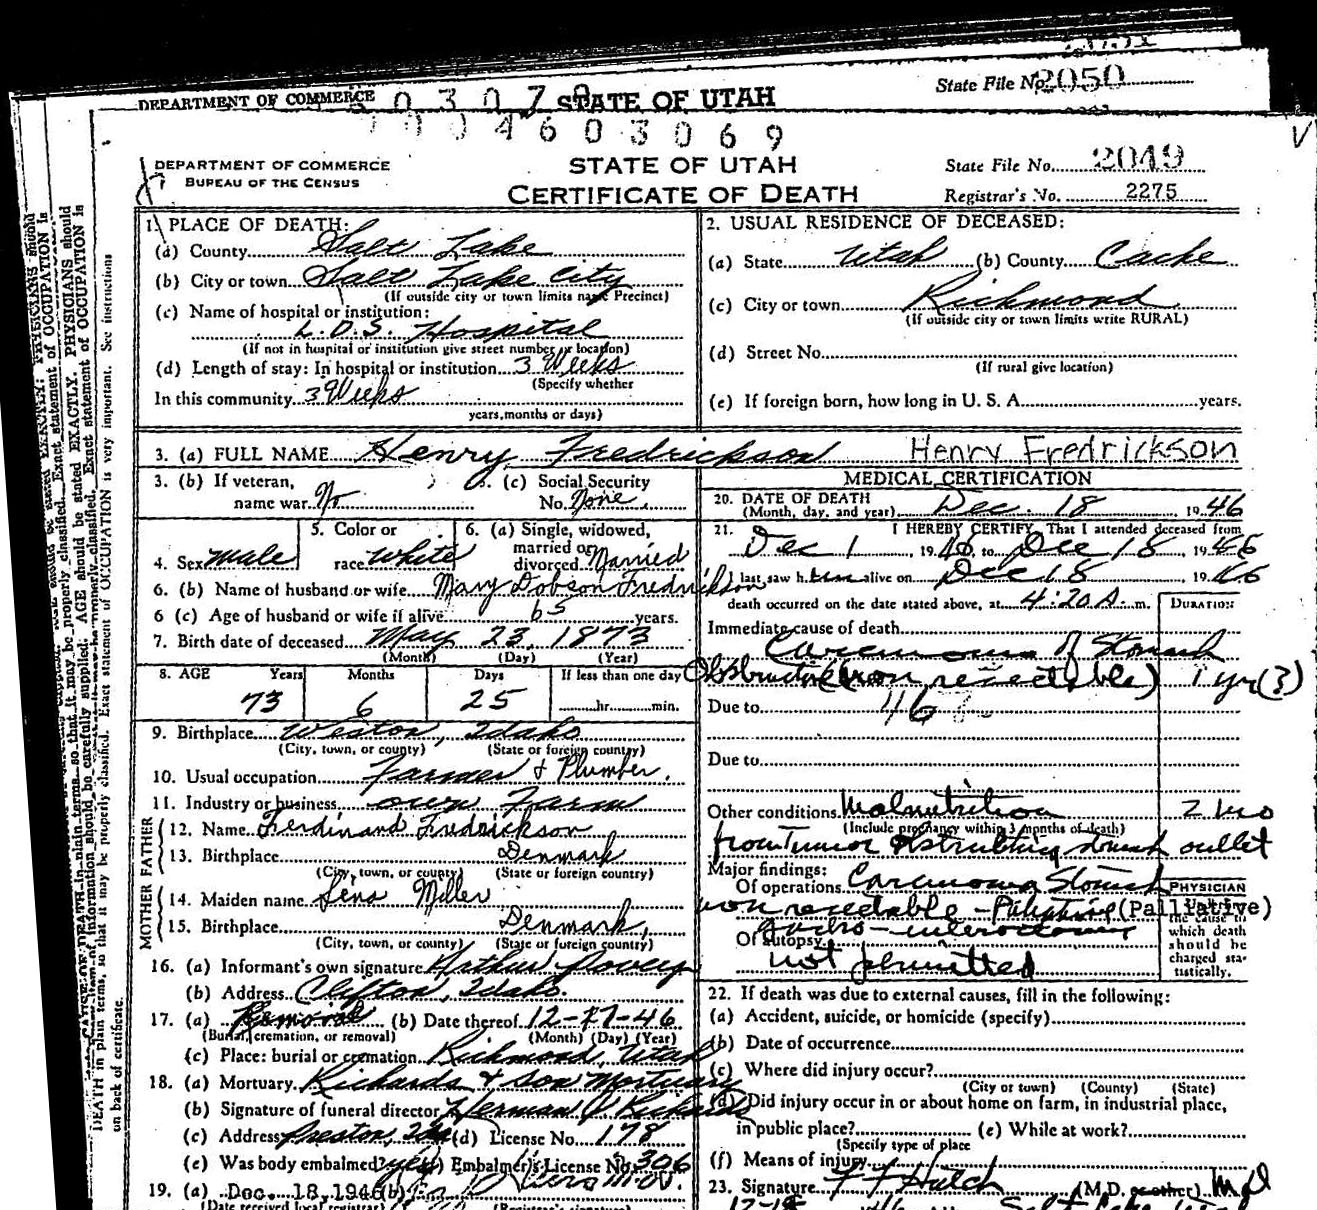 State File No. 2050
DEPARTMENT OF COMMERCE STATE OF UTAH
4 6 0 3 0 6 9
DEPARTMENT OF COMMERCE
BUREAU OF THE CENSUS
STATE OF UTAH
CERTIFICATE OF DEATH
State File No. 2049
Registrar's No. 2275
1. PLACE OF DEATH:
(a) County Salt Lake
(b) City or town Salt Lake City
(If outside city or town limits name Precinct)
(c) Name of hospital or institution:
L.D.S. Hospital
(If not in hospital or institution give street number or location)
(d) Length of stay: In hospital or institution 3 Weeks
(Specify whether
In this community 3 Weeks
years, months or days)
2. USUAL RESIDENCE OF DECEASED:
(a) State Utah (b) County Cache
(c) City or town Richmond
(If outside city or town limits write RURAL)
(d) Street No.
(If rural give location)
(e) If foreign born, how long in U. S. A. years.
3. (a) FULL NAME Henry Fredrickson Henry Fredrickson
3. (b) If veteran, name war No
(c) Social Security No. None
4. Sex Male
5. Color or race White
6. (a) Single, widowed, married or divorced Married
6. (b) Name of husband or wife Mary Dobson Fredrickson
6 (c) Age of husband or wife if alive 65 years.
7. Birth date of deceased May 23, 1873
(Month) (Day) (Year)
8. AGE Years Months Days If less than one day
73 6 25 hr. min.
9. Birthplace Weston, Idaho
(City, town, or county) (State or foreign country)
10. Usual occupation Farmer & Plumber.
11. Industry or business own Farm
FATHER
12. Name Ferdinand Fredrickson
13. Birthplace Denmark
(City, town, or county) (State or foreign country)
MOTHER
14. Maiden name Sena Miller
15. Birthplace Denmark,
(City, town, or county) (State or foreign country)
16. (a) Informant's own signature Arthur
(b) Address Clifton, Idaho.
17. (a) Removal (b) Date thereof 12-46
(Burial, cremation, or removal) (Month) (Day) (Year)
(c) Place: burial or cremation Richmond, Utah
18. (a) Mortuary Richards & Son Mortuary
(b) Signature of funeral director Herman J Richards
(c) Address Preston, Ida (d) License No. 178
(e) Was body embalmed? yes (f) Embalmer's License No. 306
19. (a) Dec. 18, 1946 (b)
(Date received local registrar) (Registrar's signature)
MEDICAL CERTIFICATION
20. DATE OF DEATH
(Month, day, and year) Dec. 18 1946
21. I HEREBY CERTIFY, That I attended deceased from
Dec 1, 1946, to Dec 18, 1946
I last saw him alive on Dec 18 1946
death occurred on the date stated above, at 4:20 A. m.
DURATION
Immediate cause of death
Carcinoma of Stomach
Obstructive (non resectable) 1 yr (?)
Due to 46
Due to
Other conditions Malnutrition 2 mo
(Include pregnancy within 3 months of death)
from Tumor obstructing stomach outlet
Major findings:
Of operations Carcinoma Stomach
non resectable - Palliative (Palliative)
Of autopsy
not permitted
PHYSICIAN
the cause to
which death
should be
charged sta-
tistically.
22. If death was due to external causes, fill in the following:
(a) Accident, suicide, or homicide (specify)
(b) Date of occurrence
(c) Where did injury occur?
(City or town) (County) (State)
(d) Did injury occur in or about home on farm, in industrial place,
in public place? (e) While at work?
(Specify type of place
(f) Means of injury
23. Signature F F Hatch (M.D. or other) MD